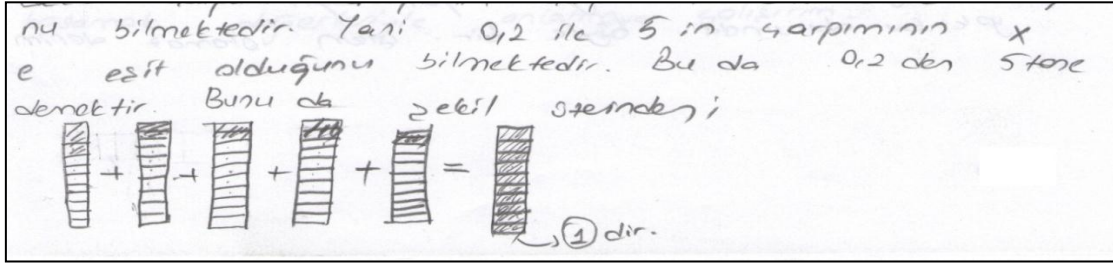 nu bilmektedir. Yani 0,2 ile 5 in çarpımının x
e eşit olduğunu bilmektedir. Bu da 0,2 den 5 tane
demektir. Bunu da şekil üzerinden;
+ + + + =
① dir.